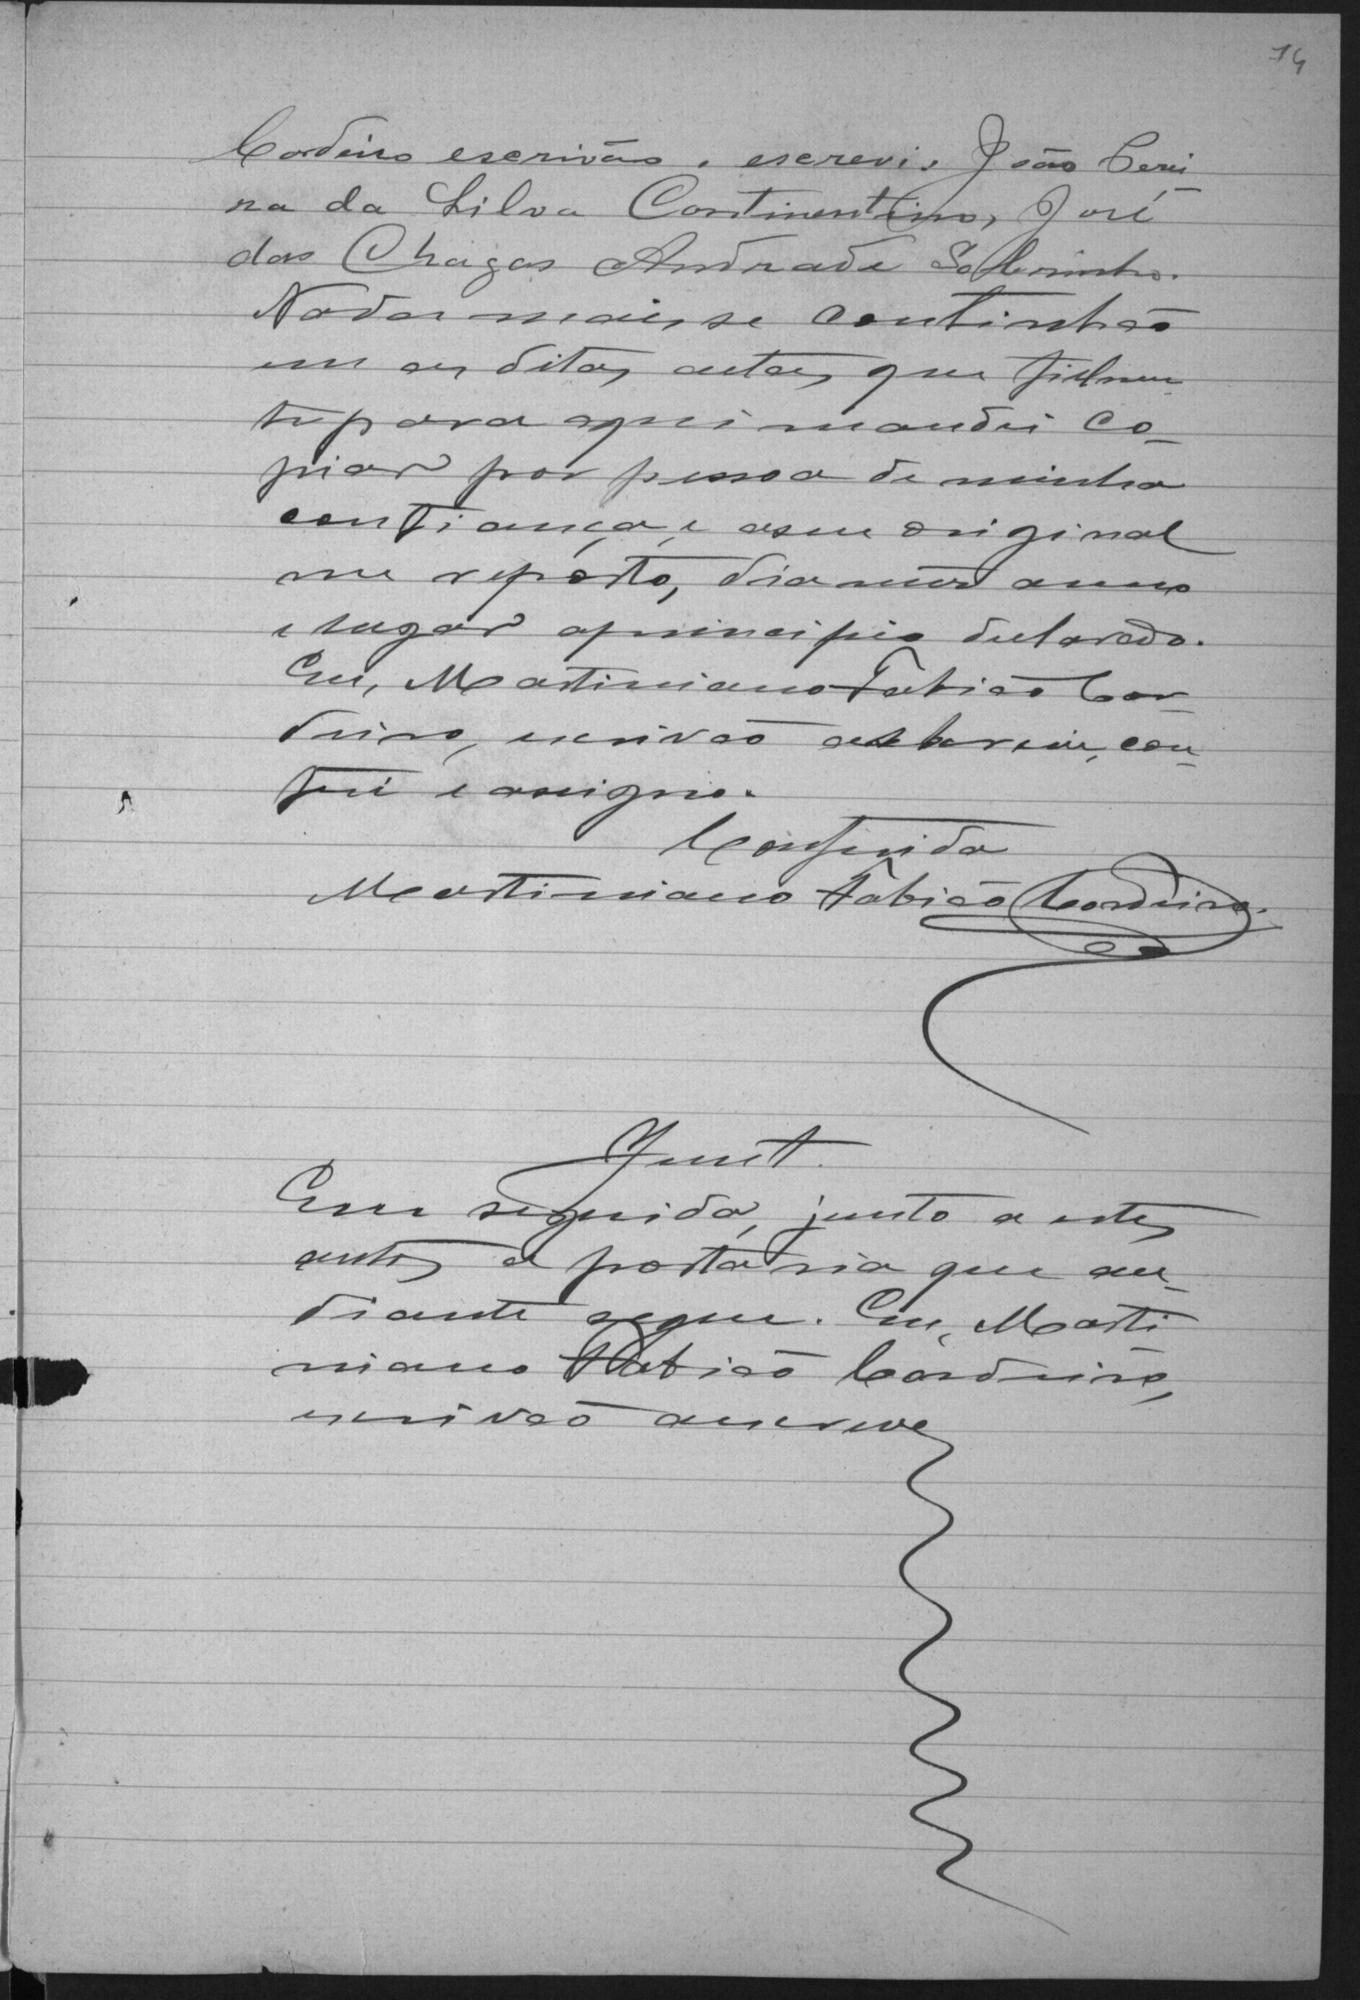 14
Cordeiro escrivão, escrevi. João Perei
ra da Silva Continentino, José
das Chagas Andrade Sobrinho.
Nada mais se continhão
em as ditas actas, que fielmen
te para aqui mandei co-
piar por pessoa de minha
confiança, e as me original
me reporto, dia mez anno
e lugar a principio declarado.
Eu, Martiniano Fabião Cor-
deiro, escrivão subscrevi, con-
feri e assigno.
Conferida
Martiniano Fabião Cordeiro.
Junt.
Em seguida, junto a estes
autos a portaria que au-
diante segue. Eu, Marti
niano Fabião Cordeiro,
escrivão a escrevi